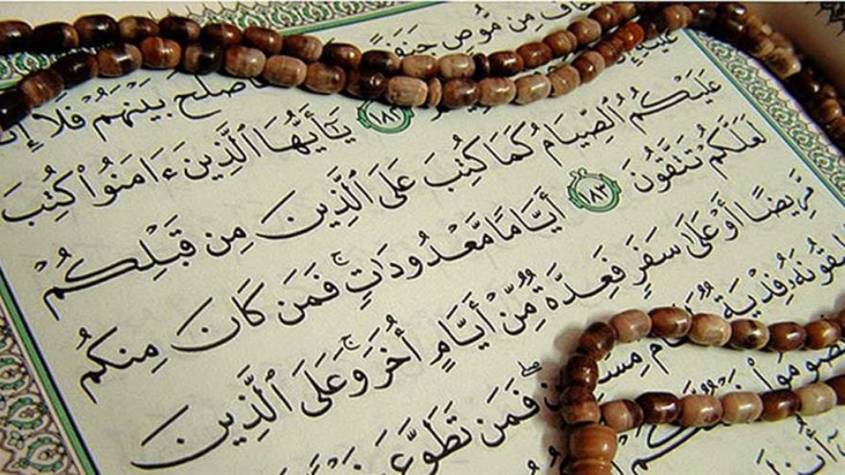 مِن مُّوصٍ جَنَفًا بَيْنَهُمْ فَلَآ
عَلَيْهِ ١٨٢ يَٰٓأَيُّهَا ٱلَّذِينَ ءَامَنُوا۟ كُتِبَ
عَلَيْكُمُ ٱلصِّيَامُ كَمَا كُتِبَ عَلَى ٱلَّذِينَ مِن قَبْلِكُمْ
لَعَلَّكُمْ تَتَّقُونَ ١٨٣ أَيَّامًا مَّعْدُودَٰتٍ ۚ فَمَن كَانَ مِنكُم
مَّرِيضًا أَوْ عَلَىٰ سَفَرٍ فَعِدَّةٌ مِّنْ أَيَّامٍ أُخَرَ ۚ وَعَلَى ٱلَّذِينَ
فِدْيَةٌ فَمَن تَطَوَّعَ